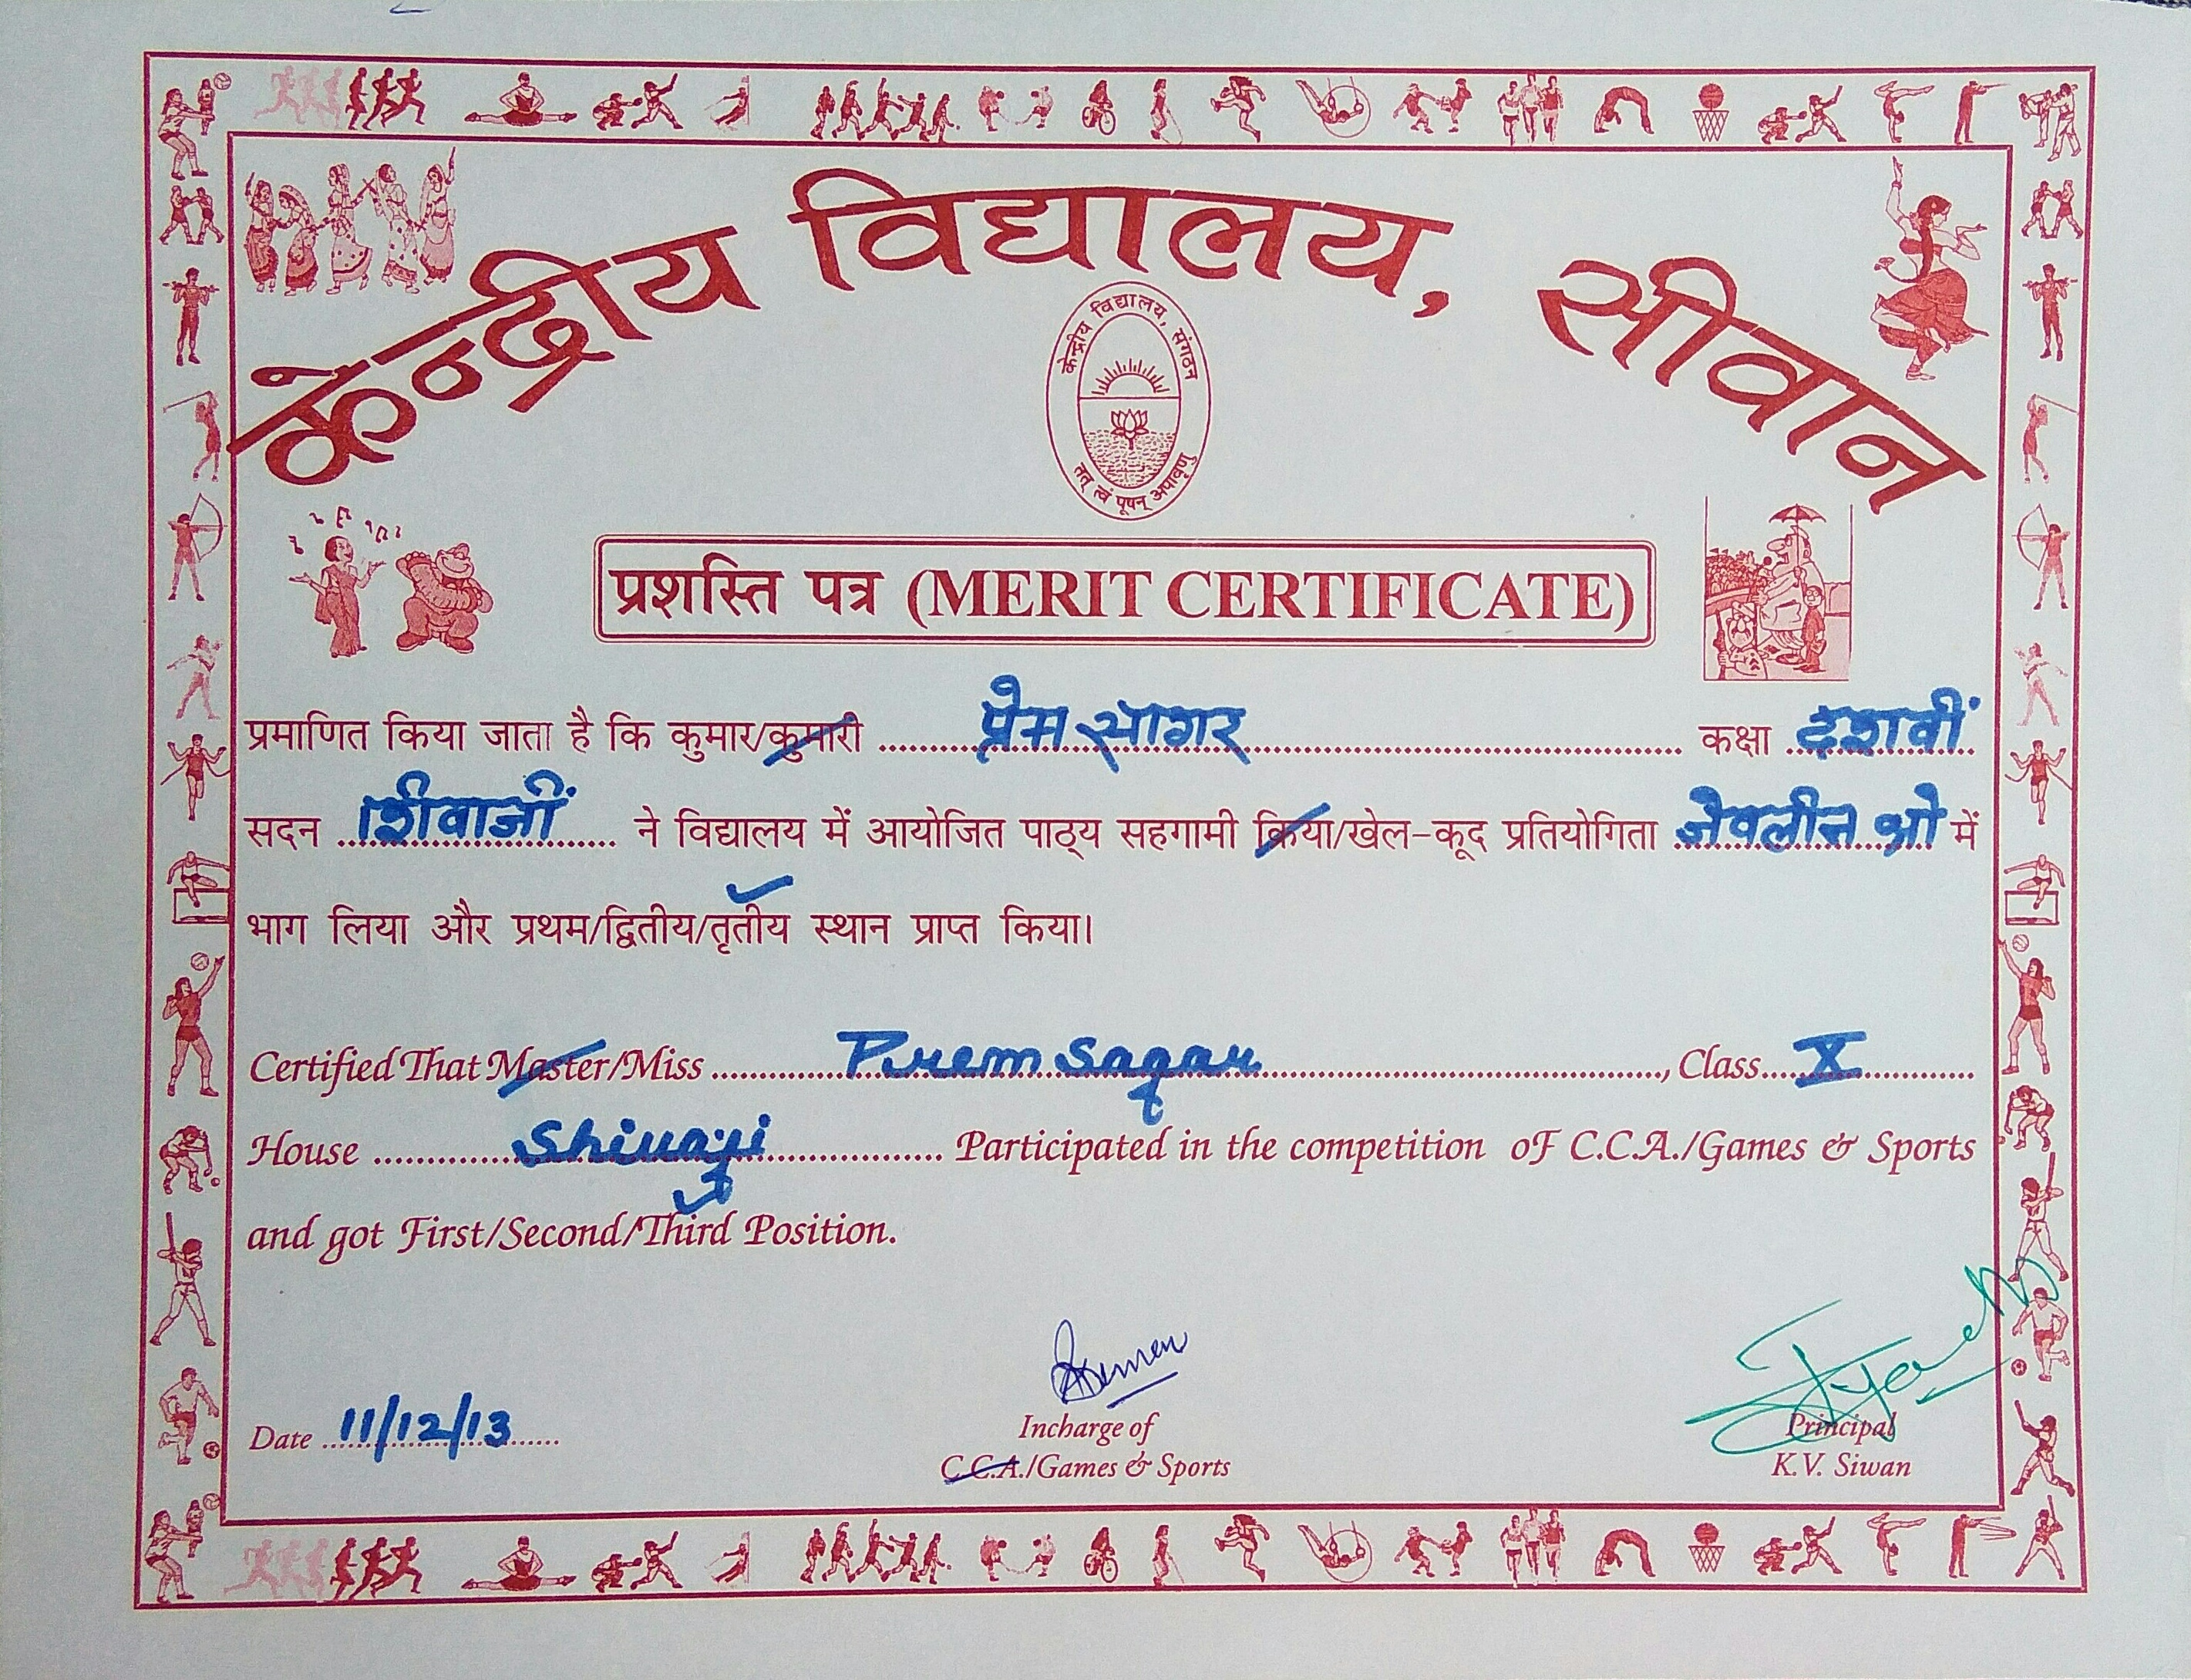 केन्द्रीय विद्यालय, सीवान
केन्द्रीय विद्यालय, संगठन
तत् त्वं पूषन् अपावृणु
प्रशस्ति पत्र (MERIT CERTIFICATE)
प्रमाणित किया जाता है कि कुमार/कुमारी प्रेम सागर कक्षा दशवीं
सदन शिवाजीं ने विद्यालय में आयोजित पाठ्य सहगामी क्रिया/खेल-कूद प्रतियोगिता जेवलीन थ्रो में
भाग लिया और प्रथम/द्वितीय/तृतीय स्थान प्राप्त किया।
Certified That Master/Miss Prem Sagar, Class X
House Shivaji Participated in the competition oF C.C.A./Games & Sports
and got First/Second/Third Position.
Date 11/12/13
Incharge of
C.C.A./Games & Sports
Principal
K.V. Siwan